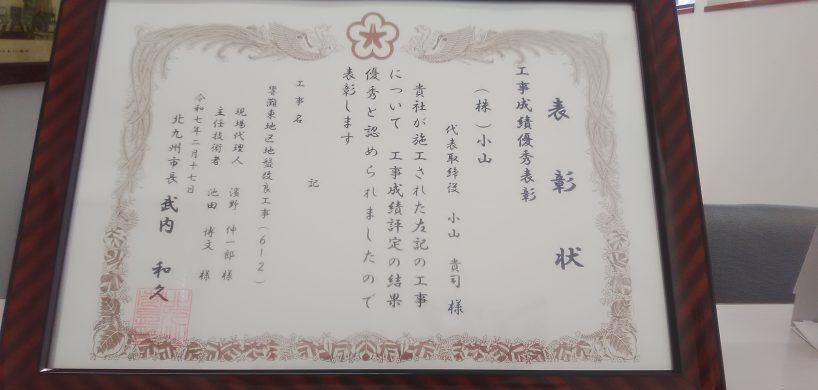 表彰状
工事成績優秀表彰
(株)小山
代表取締役 小山 貴司 様
貴社が施工された左記の工事
について 工事成績評定の結果
優秀と認められましたので
表彰します
記
工事名
響灘東地区地盤改良工事(612)
現場代理人 濱野 伸一郎 様
主任技術者 池田 博文 様
令和七年二月十七日
北九州市長 武内 和久